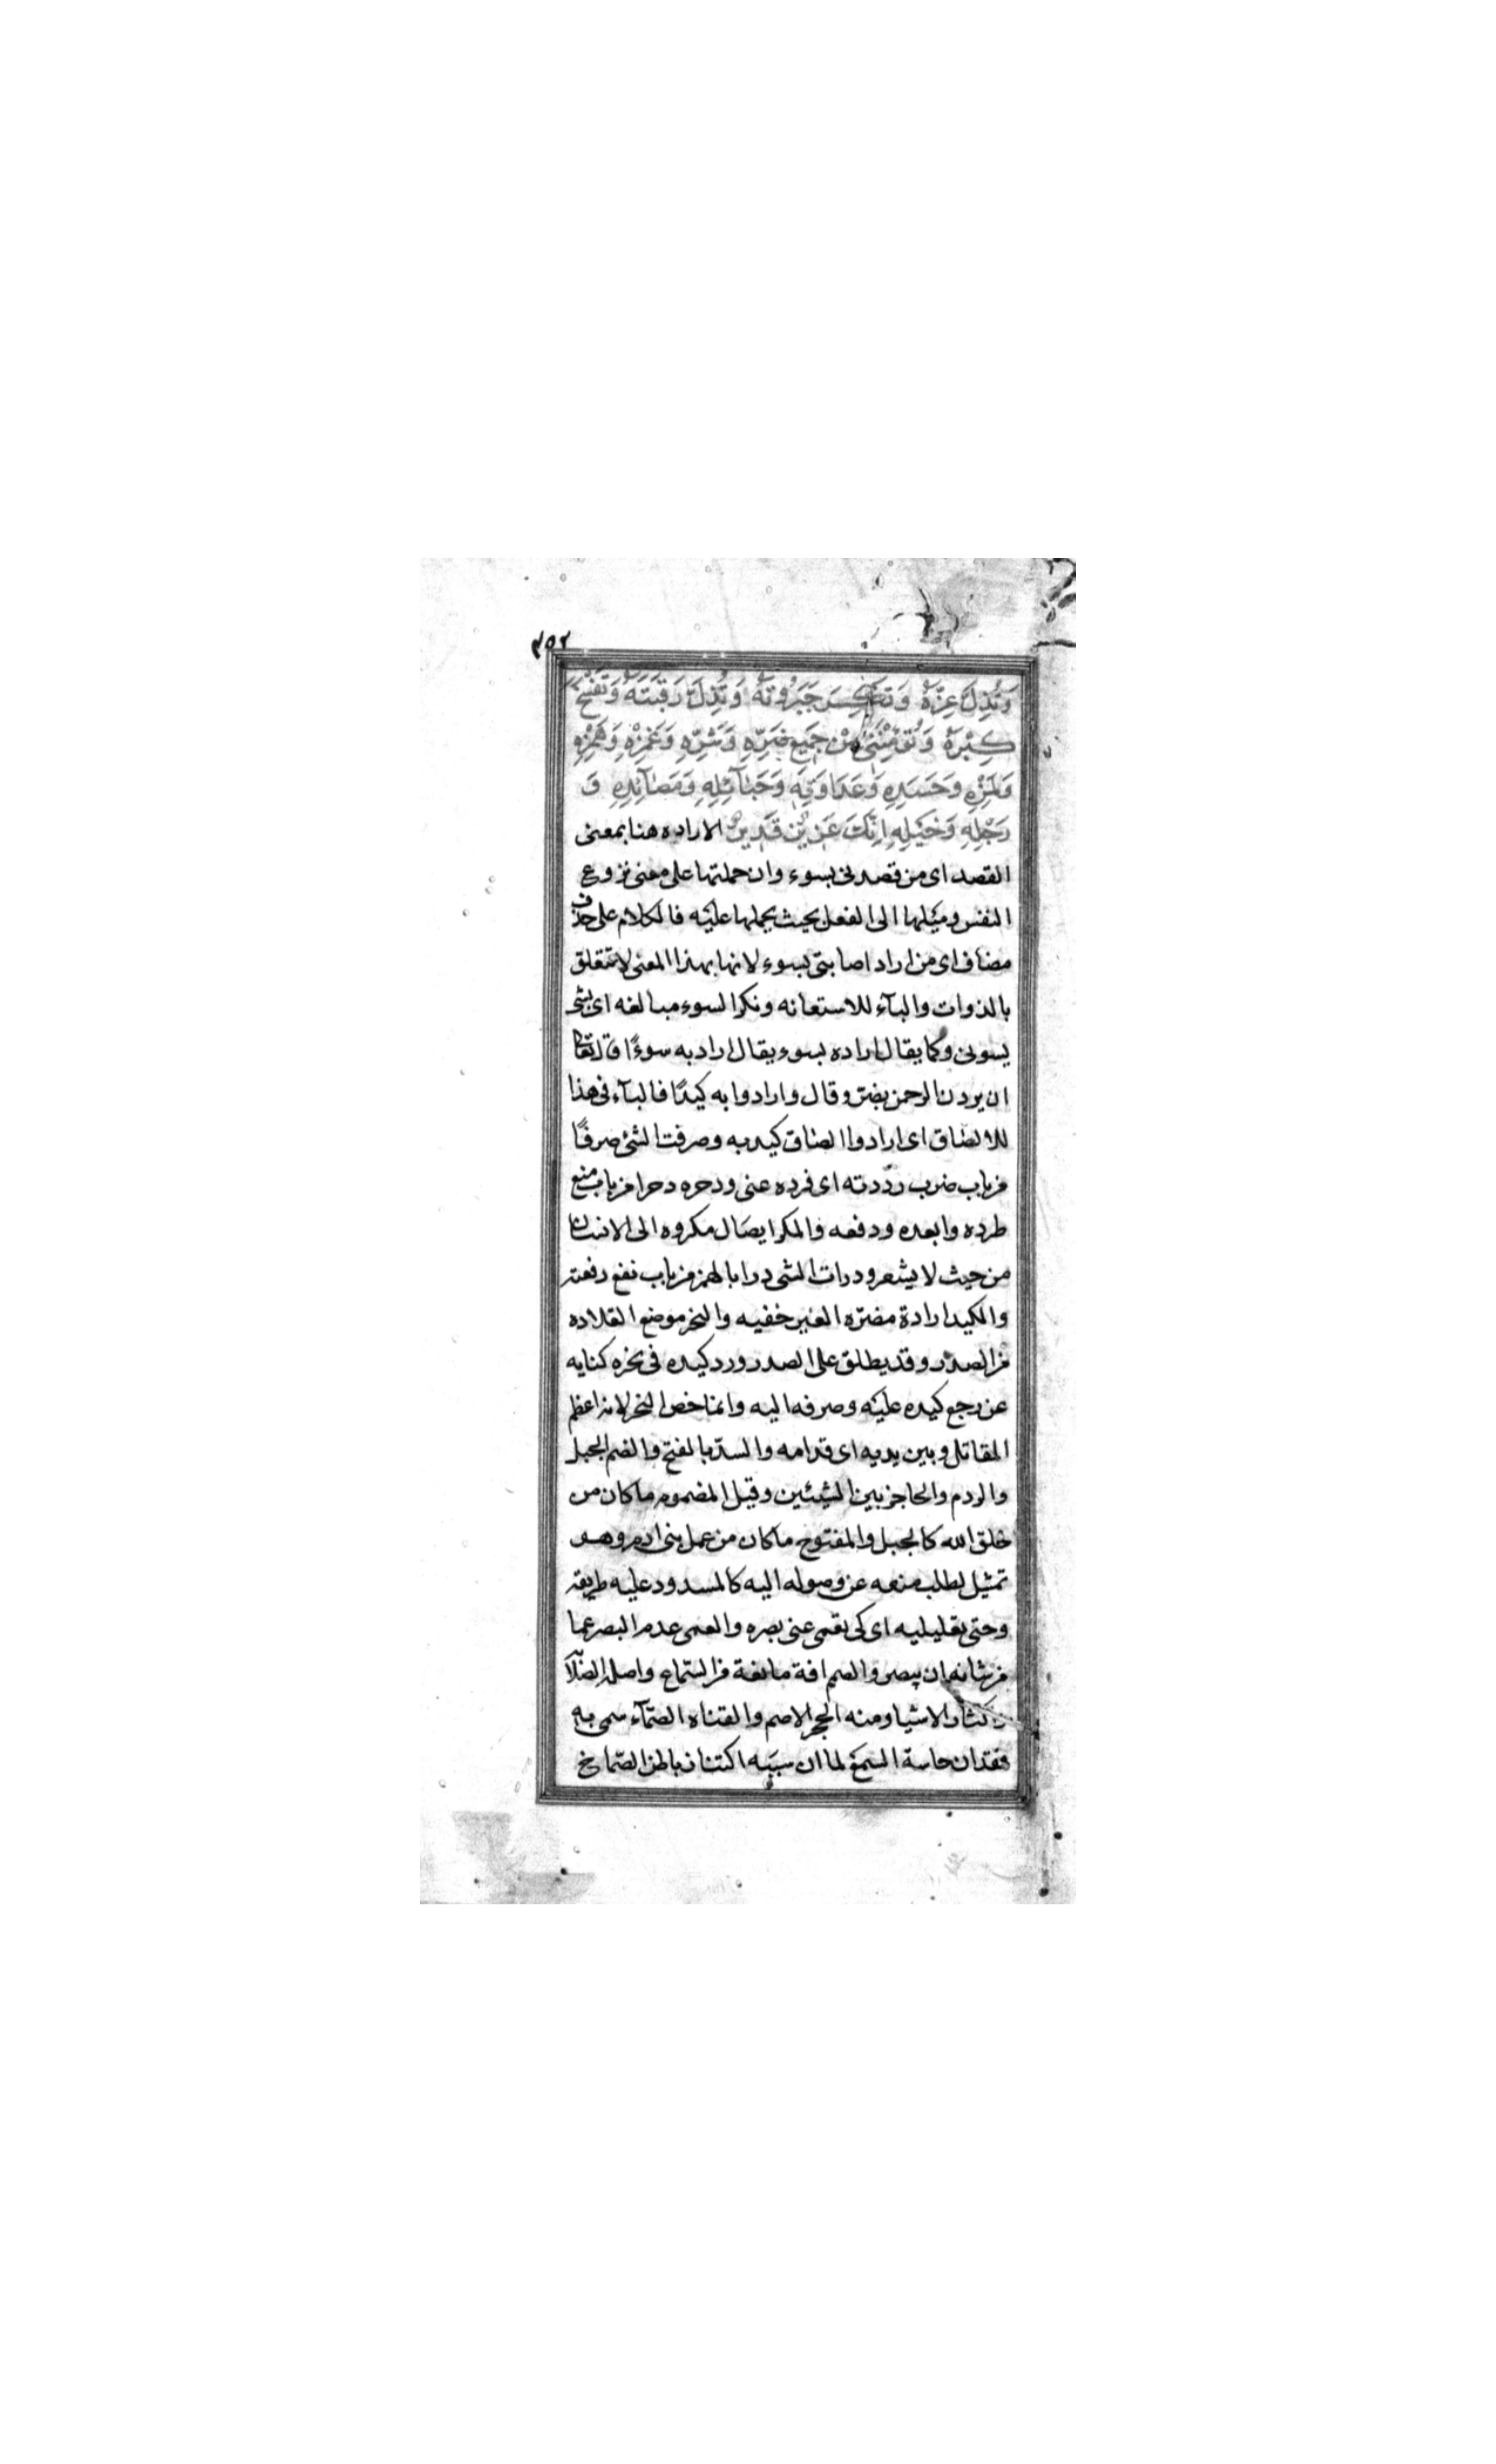 ٣٥٢
وَتُذِلَّ عِزَّهُ وَتَكْسِرَ جَبَرُوتَهُ وَتُذِلَّ رَقَبَتَهُ وَتَفْسَخَ
كِبْرَهُ وَتُؤْمِنَنِي مِنْ جَمِيعِ ضَرِّهِ وَشَرِّهِ وَغَمْزِهِ وَهَمْزِهِ
وَلَمْزِهِ وَحَسَدِهِ وَعَدَاوَتِهِ وَحَبَآئِلِهِ وَمَصَآئِدِهِ وَ
رَجْلِهِ وَخَيْلِهِ إِنَّكَ عَزِيزٌ قَدِيرٌ الاراده هنا بمعنى
القصد اى من قصدنى بسوء وان حملتها على معنى نزوع
النفس وميلها الى الفعل بحيث يحملها عليه فالكلام على حذف
مضاف اى من اراد اصابتى بسوء لانها بهذا المعنى لا تتعلق
بالذوات والبآء للاستعانه ونكرالسوء مبالغه اى بشى
يسوئنى وكما يقال اراده بسوء يقال اراد به سوءًا قال تعالى
ان يردن الرحمن بضر وقال وارادوا به كيدًا فالبآء فى هذا
للالصاق اى ارادوا الصاق كيد به وصرفت الشئ صرفًا
من باب ضرب رددته اى فرده عنى ودحره دحرا من باب منع
طرده وابعده ودفعه والمكر ايصال مكروه الى الانسان
من حيث لا يشعر ودرات الشى درا بالهمز من باب نفع دفعته
والكيد ارادة مضره الغير خفيه والنحر موضع القلاده
من الصدر وقد يطلق على الصدر ورد كيده فى نحره كنايه
عن رجع كيده عليه وصرفه اليه وانما خص النحر لانه اعظم
المقاتل وبين يديه اى قدامه والسد بالفتح والضم الجبل
والردم والحاجز بين الشيئين وقيل المضموم ما كان من
خلق الله كالجبل والمفتوح ما كان من عمل بنى ادم وهو
تمثيل لطلب منعه عن وصوله اليه كالمسدود عليه طريقه
وحتى تعليليه اى كى تعمى عنى بصره والعمى عدم البصر عما
من شانه ان يبصر والصمم افة مانعة من السماع واصله الصلا
كتناز الاشيا ومنه الحجر الاصم والقناه الصمآء سمى به
فقدان حاسة السمع لما ان سببه اكتناز باطن الصماخ